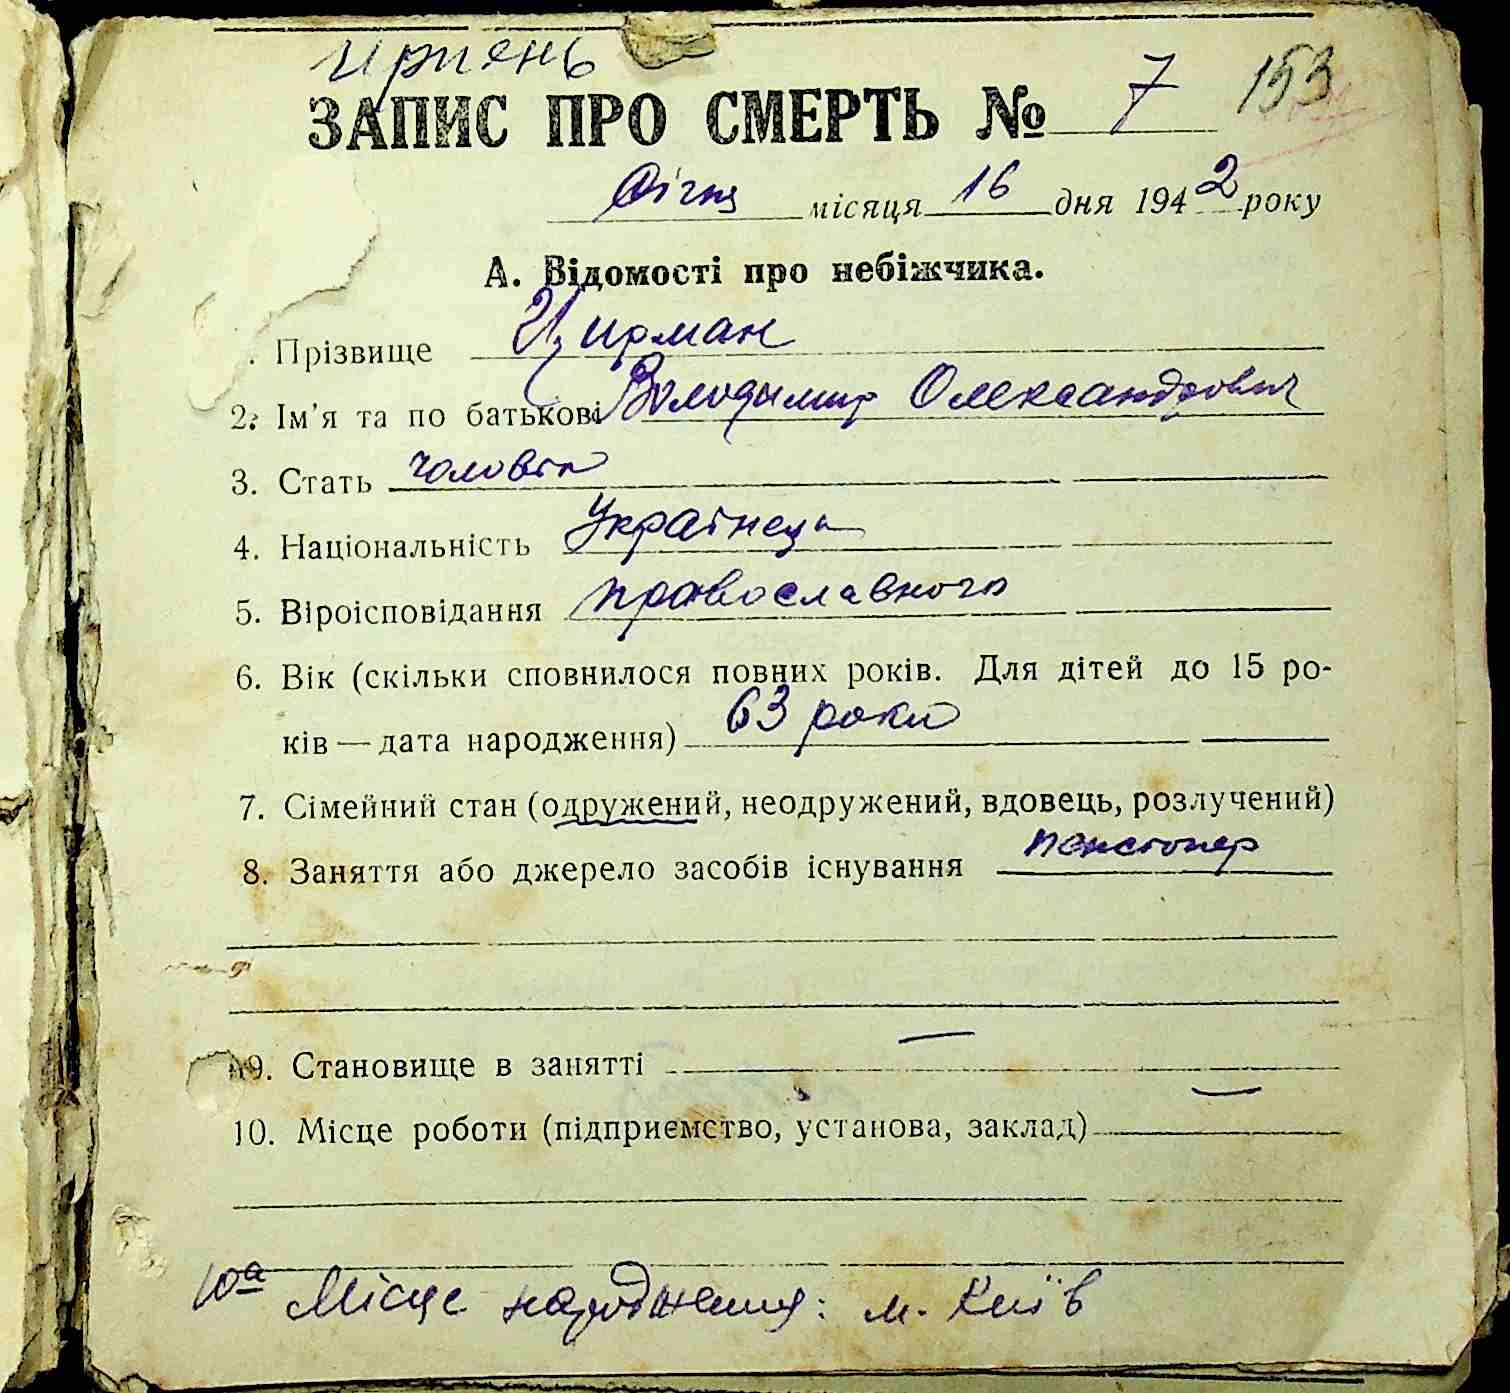 Ирпень
ЗАПИС ПРО СМЕРТЬ № 7 153
Січня місяця 16 дня 1942 року
А. Відомості про небіжчика.
. Прізвище Цирман
2. Ім'я та по батькові Володымир Олександрович
3. Стать чоловік
4. Національність Українець
5. Віроісповідання православного
6. Вік (скільки сповнилося повних років. Для дітей до 15 ро-
ків — дата народження) 63 роки
7. Сімейний стан (одружений, неодружений, вдовець, розлучений)
8. Заняття або джерело засобів існування пенсіонер
9. Становище в занятті —
10. Місце роботи (підприємство, установа, заклад) —
10а Місце народження: м. Київ